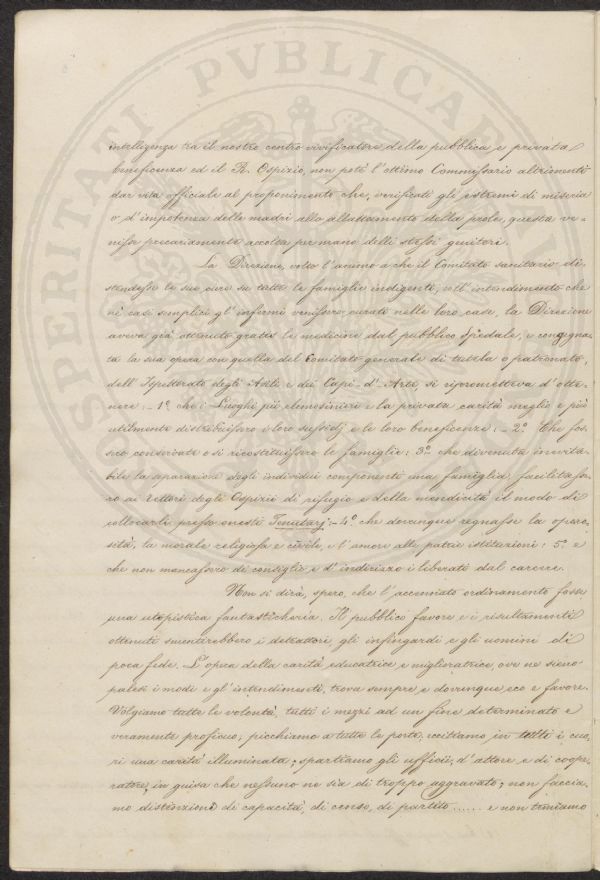 intelligenza tra il nostro centro vivificatore della pubblica e privata
beneficenza ed il R. Ospizio, non potè l'ottimo Commissario altrimenti
dar vita officiale al proponimento che, verificati gli estremi di miseria
o d'impotenza delle madri allo allattamento della prole, questa ve=
nisse precariamente accolta per mano delli stessi genitori.
La Direzione, volto l'animo a che il Comitato sanitario di=
stendesse le sue cure su tutte le famiglie indigenti, coll'intendimento che
ne' casi semplici gl'infermi venissero curati nelle loro case, la Direzione
aveva già ottenuto gratis le medicine dal pubblico Spedale, e congegna=
ta la sua opera con quella del Comitato generale di tutela o patronato,
dell'Ispettorato degli Asili e dei Capi-d'Arte, si riprometteva d'otte=
nere: - 1.º che i Luoghi pii elemosinieri e la privata carità meglio e più
utilmente distribuissero i loro sussidj e le loro beneficenze: - 2.º Che fos=
sero conservate o si ricostituissero le famiglie: 3.º che divenuta inevita=
bile la separazione degli individui componenti una famiglia, facilitasse=
ro ai Rettori degli Ospizii di rifugio e della mendicità il modo di
collocarli presso onesti Tenutarj: - 4.º che dovunque regnasse la opero=
sità, la morale religiosa e civile, e l'amore alle patrie istituzioni: 5.º e
che non mancassero di consiglio e d'indirizzo i liberati dal carcere.
Non si dirà, spero, che l'accennato ordinamento fosse
una utopistica fantasticheria. Il pubblico favore e i risultamenti
ottenuti smentirebbero i detrattori, gli infingardi e gli uomini di
poca fede. L'opera della carità educatrice e miglioratrice, ove ne sieno
palesi i modi e gl'intendimenti, trova sempre e dovunque eco e favore.
Volgiamo tutte le volontà, tutti i mezzi ad un fine determinato e
veramente proficuo; picchiamo a tutte le porte; eccitiamo in tutti i cuo=
ri una carità illuminata; spartiamo gli ufficii; d'attore e di coope=
ratore, in guisa che nessuno ne sia di troppo aggravato; non faccia=
mo distinzioni di capacità, di censo, di partito ...... e non temiamo